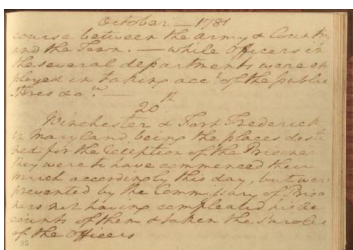 October — 1781
course between the army & Country
and the Town. — while Officers in
the several departments were em
ployed in taking acct. of the public
Stores &ca. —
20th
Winchester & Fort Frederick
in Maryland being the places des
ned for the reception of the Prisoners
they were to have commenced their
march accordingly this day, but were
prevented by the Commissary of Priso
ners not having compleated his ac
counts of them & taken the Paroles
of the Officers